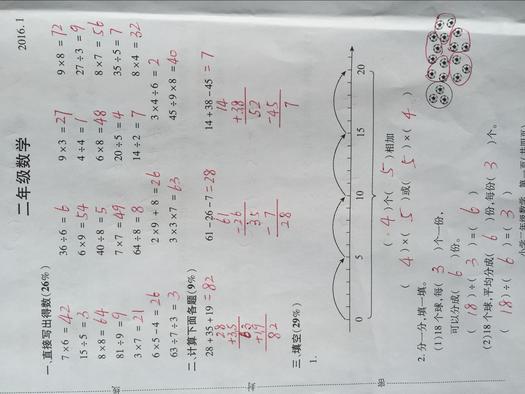 2016.1
二年级数学
一、直接写出得数(26%)
7×6=42 36÷6=6 9×3=27 9×8=72
15÷5=3 6×9=54 4÷4=1 27÷3=9
8×8=64 40÷8=5 6×8=48 8×7=56
81÷9=9 7×7=49 20÷5=4 35÷5=7
3×7=21 64÷8=8 14÷2=7 8×4=32
6×5-4=26 2×9+8=26 3×4÷6=2
63÷7÷3=3 3×3×7=63 45÷9×8=40
二、计算下面各题(9%)
28+35+19=82 61-26-7=28 14+38-45=7
28 61 14
+35 -26 +38
63 35 52
+19 -7 -45
82 28 7
三、填空(29%)
1.
0 5 10 15 20
(4)个(5)相加
(4)×(5)或(5)×(4)
2.分一分,填一填。
(1)18个球,每(3)个一份,
可以分成(6)份。
(18)÷(3)=(6)
(2)18个球,平均分成(6)份,每份(3)个。
(18)÷(6)=(3)